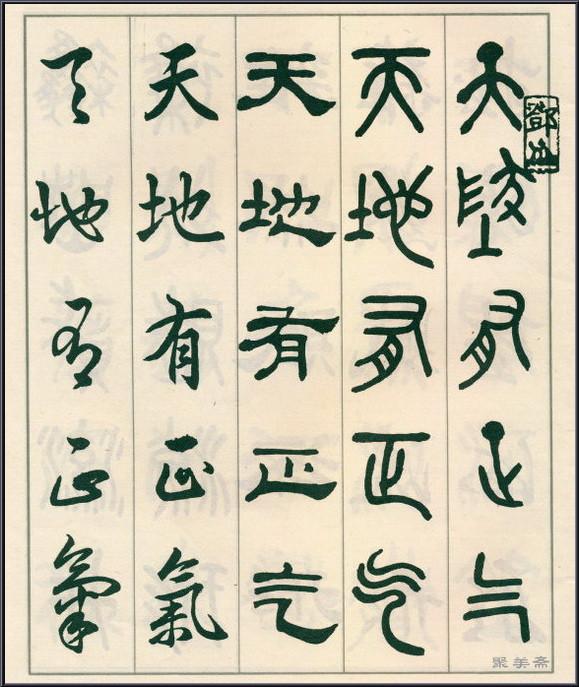 天地有正气
天地有正气
天地有正气
天地有正氣
天地有正氣
聚美斋